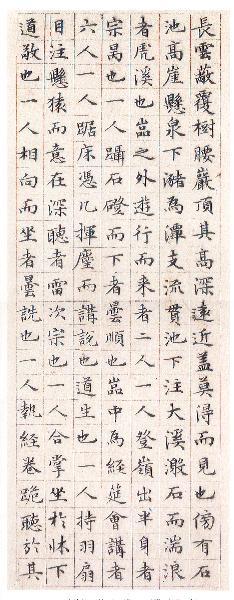 長雲蔽覆樹腰巖頂其高深遠近蓋莫得而見也傍有石
池高崖懸泉下潴為潭支流貫池下注大溪激石而湍浪
者虎溪也嵓之外遊行而來者二人一人登嶺出半身者
宗昺也一人躡石磴而下者曇順也嵓中為經筵會講者
六人一人踞床憑几揮麈而講說也道生也一人持羽扇
目注懸猿而意在深聽者雷次宗也一人合掌坐於牀下
道敬也一人相向而坐者曇詵也一人執經卷跪聽於其